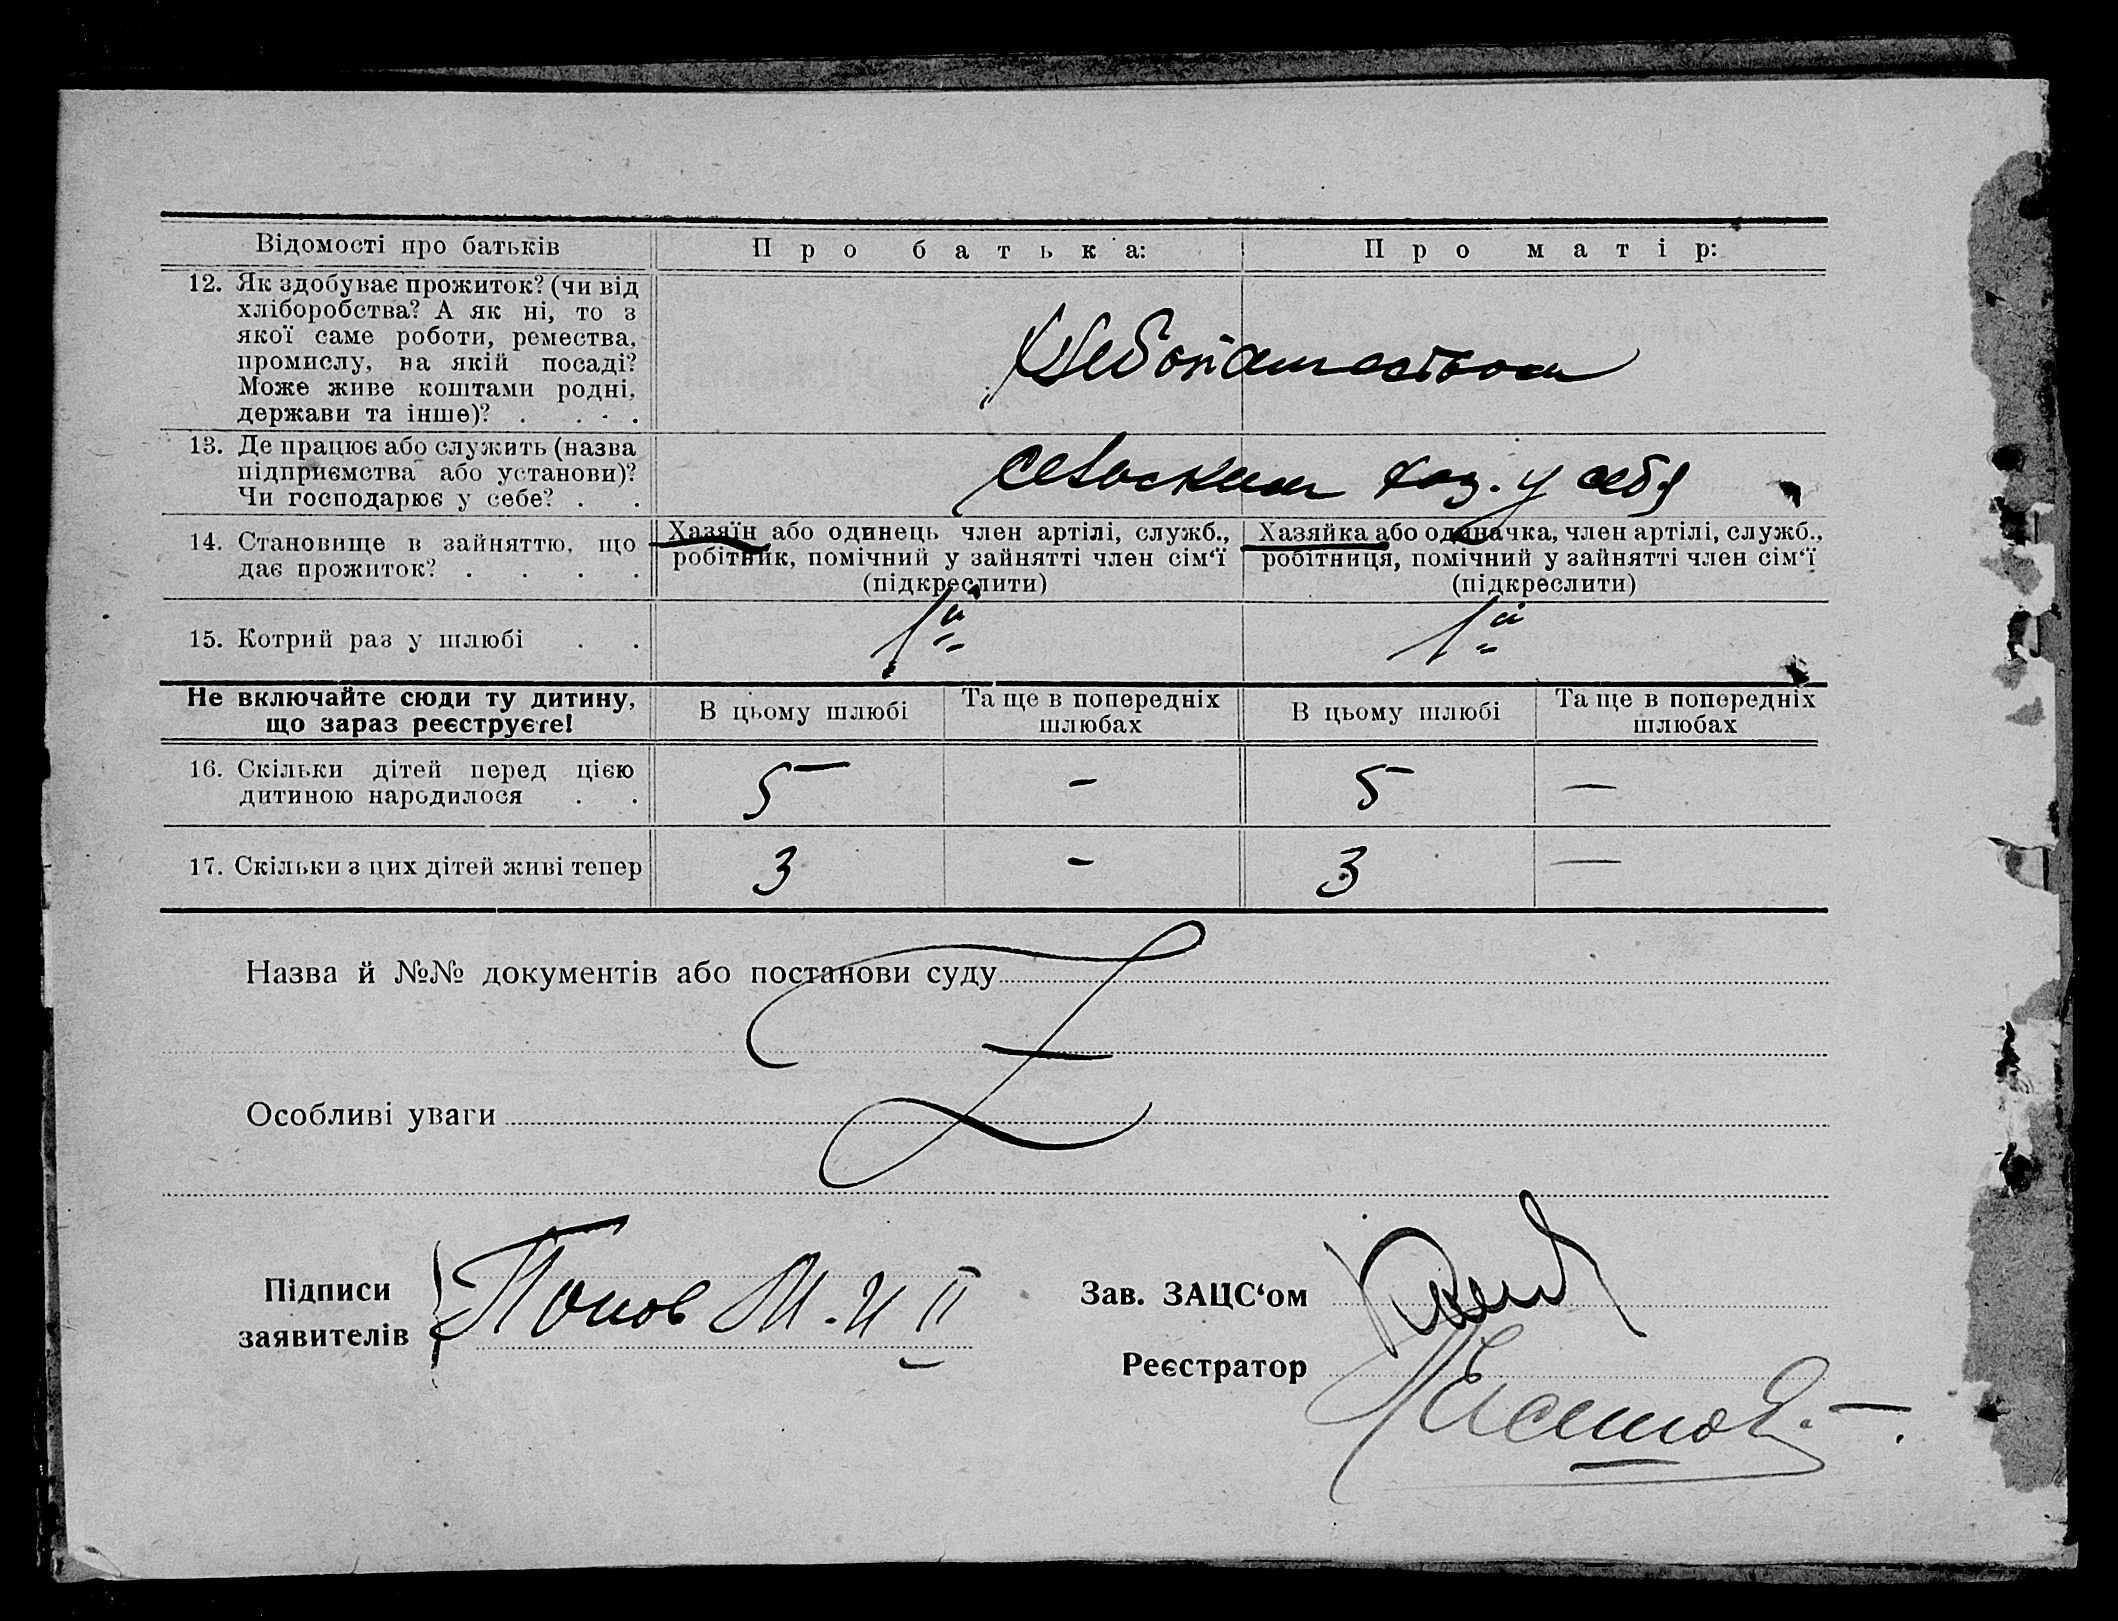 Відомості про батьків
Про батька:
Про матір:
12. Як здобуває прожиток? (чи від
хліборобства? А як ні, то з
якої саме роботи, ремества,
промислу, на якій посаді?
Може живе коштами родні,
держави та інше)? . . . .
Хлебопашеством
13. Де працює або служить (назва
підприємства або установи)?
Чи господарює у себе? . .
сельским хоз. у себя
14. Становище в зайняттю, що
дає прожиток? . . . .
Хазяїн або одинець член артілі, служб.,
робітник, помічний у зайнятті член сім‘ї
(підкреслити)
Хазяйка або одиначка, член артілі, служб.,
робітниця, помічний у зайнятті член сім‘ї
(підкреслити)
15. Котрий раз у шлюбі . .
1й
1й
Не включайте сюди ту дитину,
що зараз реєструєте!
В цьому шлюбі
Та ще в попередніх
шлюбах
В цьому шлюбі
Та ще в попередніх
шлюбах
16. Скільки дітей перед цією
дитиною народилося . .
5 – 5 —
17. Скільки з цих дітей живі тепер
3 – 3 —
Назва й №№ документів або постанови суду
Особливі уваги
Підписи
заявителів
Попов М. И II
Зав. ЗАЦС‘ом
Реєстратор